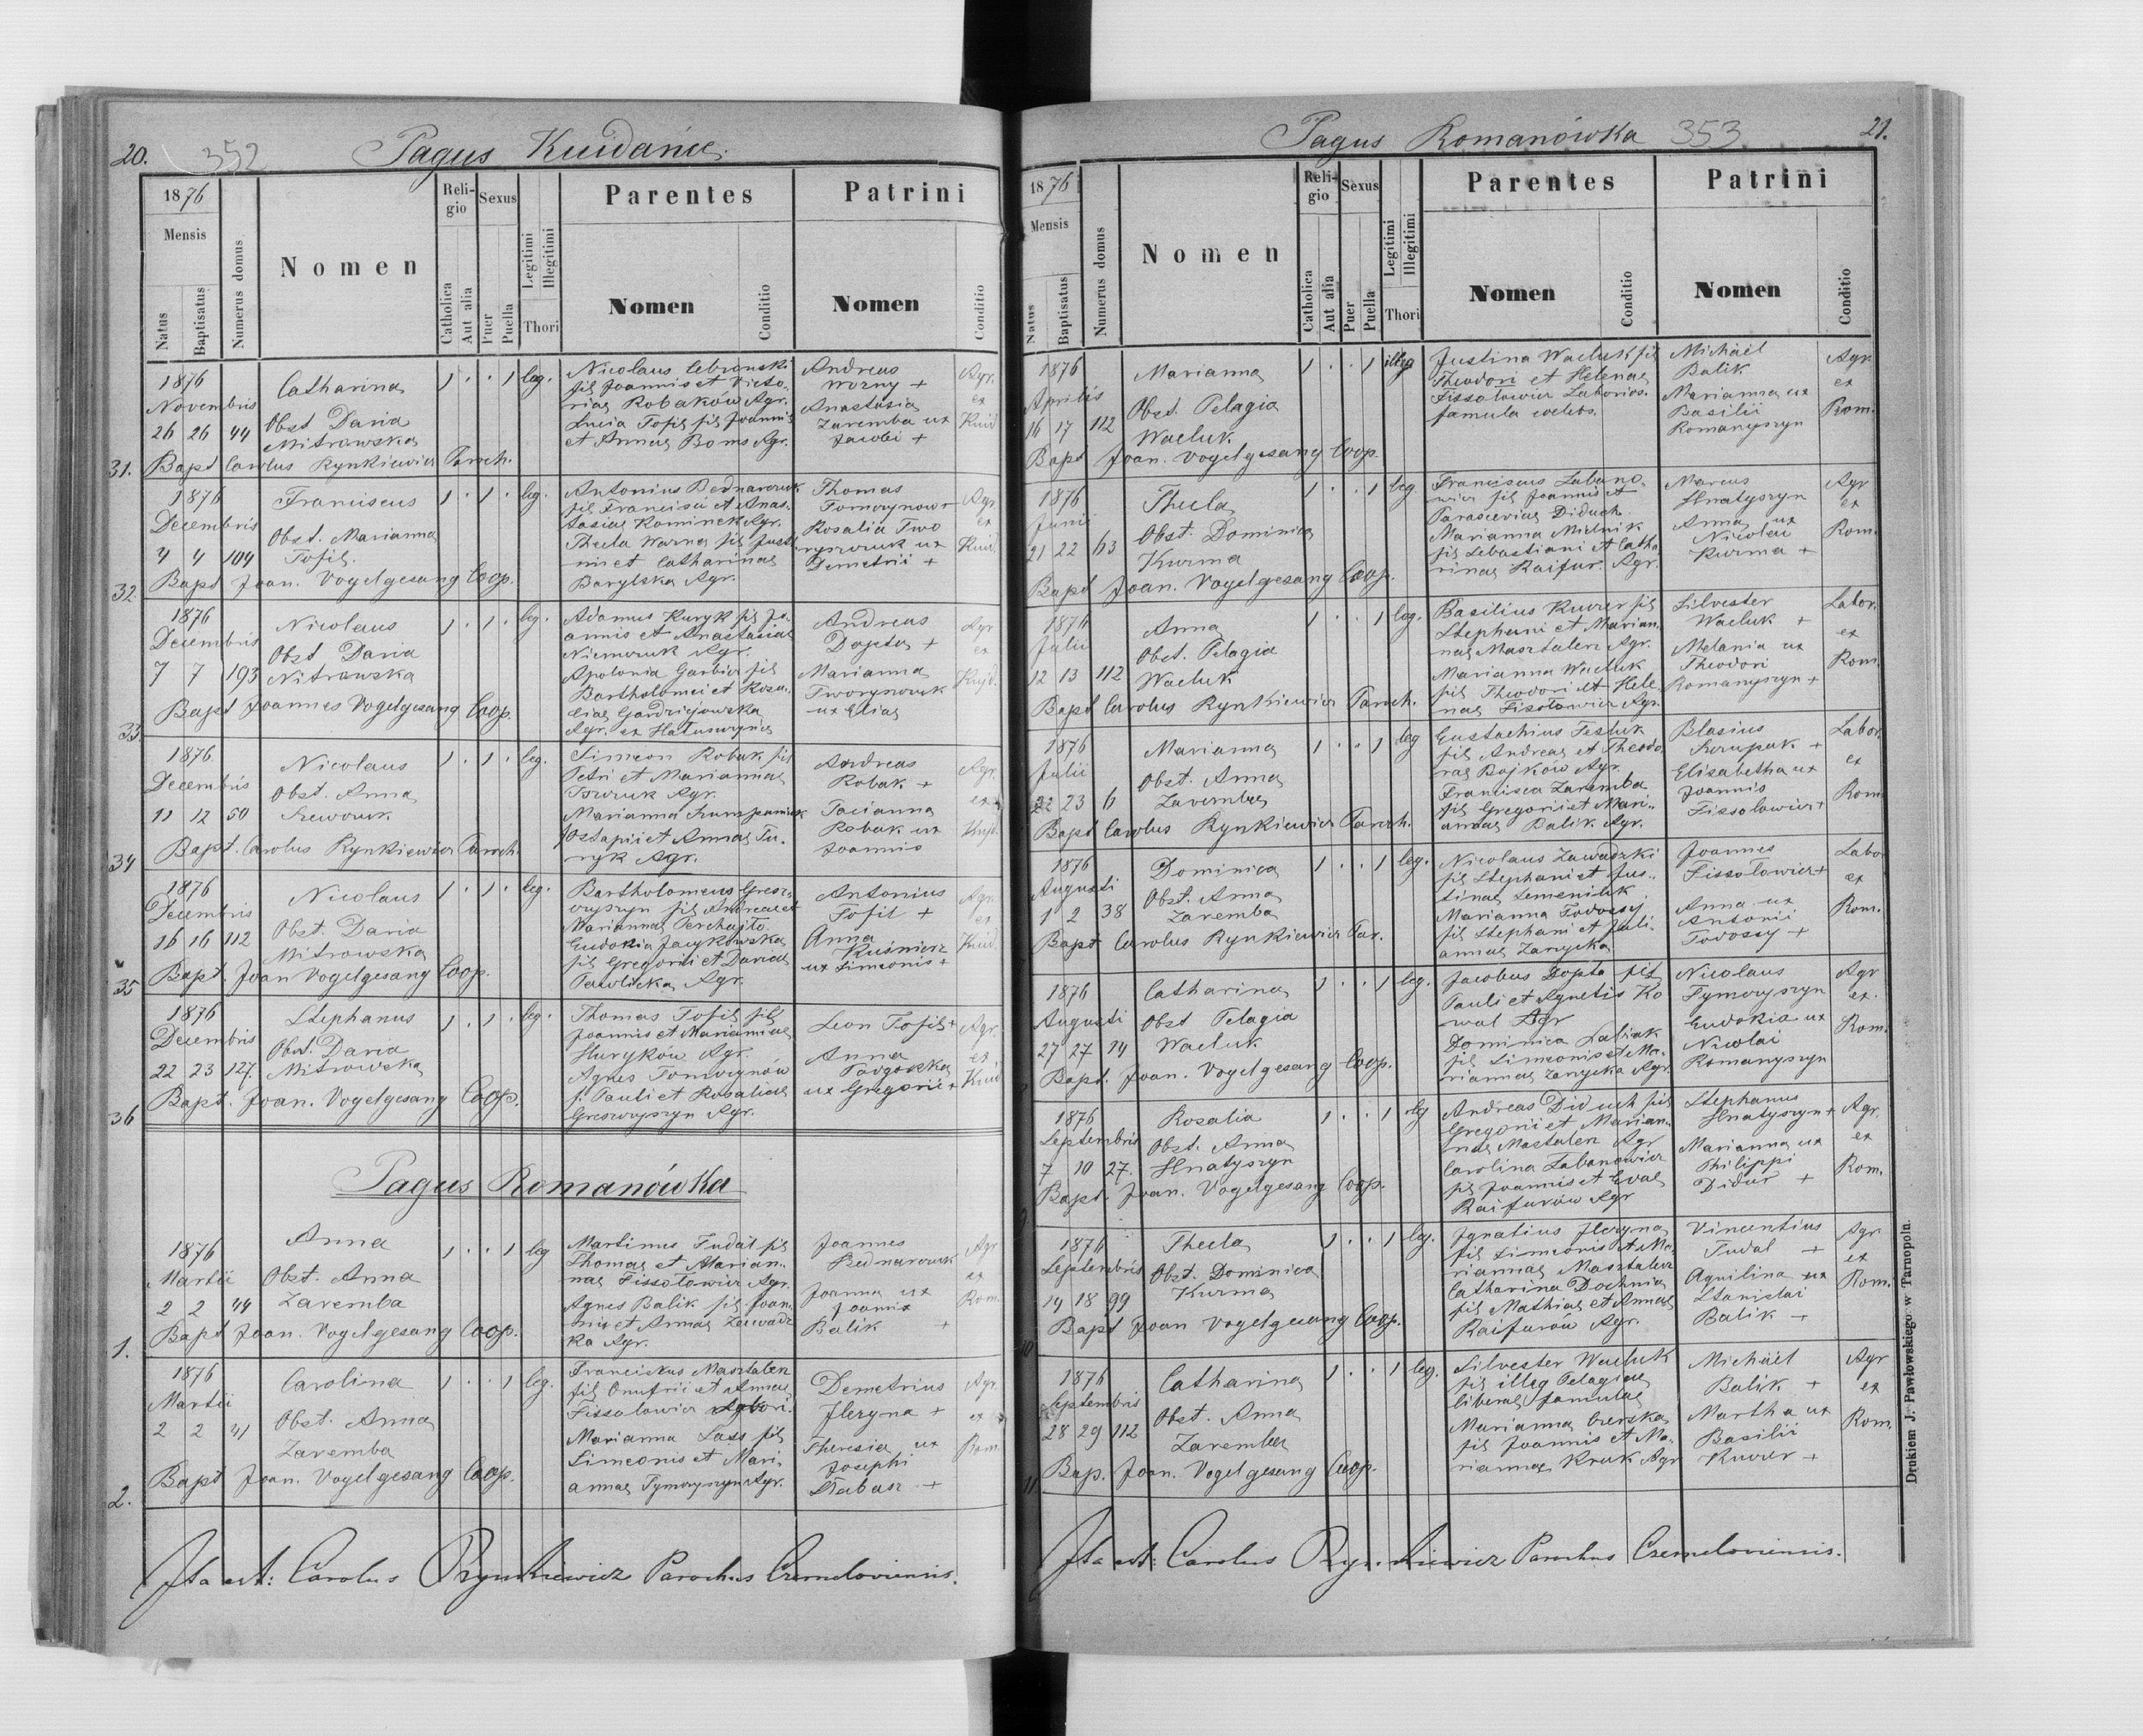 20.
352
Pagus Kuidańce.
1876
Mensis
Natus
Baptisatus
Numerus domus
Nomen
Reli-
gio
Catholica
Aut alia
Sexus
Puer
Puella
Legitimi
Illegitimi
Thori
Parentes
Nomen
Conditio
Patrini
Nomen
Conditio
31.
1876
Novembris
26 26 44
Catharina
Obst Daria
Mitrowska
1 . . 1 leg.
Nicolaus
fil Joannis et Victo-
riae Robaków Agr.
Lucia Tofil fil Joannis
et Annae Boms Agr.
Andreas
Worny +
Anastasia
Zaremba ux
Jacobi +
Agr.
ex
Kuid
Bapt Carolus Rynkiewicz Paroch.
32.
1876
Decembris
4 4 104
Franciscus
Obst. Marianna
Tofil.
1 . 1 . leg.
Antonius Bednarczuk
fil Francisci et Anas-
tasiae Kominek Agr.
Thecla Warna fil Justi
ni et Catharinae
Barylska Agr.
Thomas
Rosalia Two
ryszczuk ux
Demetrii +
Agr.
ex
Kuid
Bapt Joan. Vogelgesang Coop.
33.
1876
Decembris
7 7 193
Nicolaus
Obst Daria
Nitrowska
1 . 1 . leg.
Adamus Kuryk fil Jo-
annis et Anastasiae
Niemczuk Agr.
Apolonia Garbicz fil
Bartholomei et Rosa-
liae
Agr. ex
Andreas
Dopta +
Marianna
ux Eliae
Agr
ex
Kujd.
Bapt Joannes Vogelgesang Coop.
34
1876
Decembris
11 12 50
Nicolaus
Obst. Anna
Szewczuk
1 . 1 . leg.
Simeon Robak fil
Petri et Mariannae
Agr.
Marianna
Ostapii et Annae Tu-
ryk Agr.
Andreas
Robak +
Tacianna
Robak ux
Joannis
Agr.
ex
Kujd.
Bapt. Carolus Rynkiewicz Paroch.
35
1876
Decembris
16 16 112
Nicolaus
Obst. Daria
Mitrowska
1 . 1 . leg.
Bartholomeus Gresz-
czyszyn fil Andreae et
Mariannae Perchajło.
Eudokia Jacykowska
fil Gregorii et Dariae
Pawlicka Agr.
Antonius
Tofil +
Anna
Kuśnierz
ux Simeonis +
Agr.
ex
Kuid.
Bapt. Joan Vogelgesang Coop.
36
1876
Decembris
22 23 127.
Stephanus
Obst. Daria
Mitrowska
1 . 1 . leg.
Thomas Tofil fil
Joannis et Mariannae
Huryków Agr.
Agnes Tomczynów
f. Pauli et Rosaliae
Greszczyszyn Agr.
Leon Tofil +
Anna
ux Gregorii +
Agr.
ex
Kuid
Bapt. Joan. Vogelgesang Coop.
Pagus Romanówka
1.
1876
Martii
2 2 44
Anna
Obst. Anna
Zaremba
1 . . 1 leg
Martinus Fudal fil
Thomae et Marian-
nae Fissołowicz Agr.
Agnes Balik fil Joan-
nis et Annae Zawadz
ka Agr.
Joannes
Bednarczuk
Joanna ux
Joannis
Balik +
Agr
ex
Rom.
Bapt Joan. Vogelgesang Coop.
2.
1876
Martii
2 2 41
Carolina
Obst. Anna
Zaremba
1 . . 1 leg.
Franciskus Masztalerz
fil Onufrii et Annae
Fissołowicz
Marianna Lass fil
Simeonis et Mari-
annae Tymczyszyn Agr.
Demetrius
Jleczyna +
Theresia ux
Josephi
Drabasz +
Agr.
ex
Rom.
Bapt Joan. Vogelgesang Coop.
Ita est: Carolus Rynkiewicz Parochus Czemeloviensis.
Pagus Romanówka
353
21.
1876
Mensis
Natus
Baptisatus
Numerus domus
Nomen
Reli-
gio
Catholica
Aut alia
Sexus
Puer
Puella
Legitimi
Illegitimi
Thori
Parentes
Nomen
Conditio
Patrini
Nomen
Conditio
1876
Aprilis
16 17 112
Marianna
Obst. Pelagia
Wacluk
1 . . 1 illeg
Justina Wacluk fil
Theodori et Helenae
Fissołowicz Laborios.
famula coelebs.
Michäel
Balik
Marianna ux
Basilii
Romanyszyn
Agr.
ex
Rom.
Bapt Joan. Vogelgesang Coop.
1876
Junii
21 22 63
Thecla
Obst. Dominica
Kurma
1 . . 1 leg.
Franciscus Labano-
wicz fil Joannis et
Parasceviae Diduch.
Marianna Mielnik
fil Sebastiani et Catha-
rinae Raifur. Agr.
Marcus
Hnatyszyn
Anna ux
Nicolai
Kurma +
Agr
ex
Rom.
Bapt Joan. Vogelgesang Coop.
1876
Julii
12 13 112
Anna
Obst. Pelagia
Wacluk
1 . . 1 leg.
Basilius Kuczer fil
Stephani et Marian-
nae Masztalerz Agr.
Marianna Wacluk
fil Theodori et Hele-
nae Fisołowicz Agr.
Silvester
Wacluk +
Melania ux
Theodori
Romanyszyn +
Labor.
ex
Rom.
Bapt Carolus Rynkiewicz Paroch.
1876
Julii
22 23 6
Marianna
Obst. Anna
Zaremba
1 . . 1 leg
Eustachius Festuk
fil Andreae et Theodo
rae Bojków Agr.
Francisca Zaremba
fil Gregorii et Mari-
annae Balik. Agr.
Blasius
Elisabetha ux
Joannis
Fissołowicz +
Labor.
ex
Rom
Bapt Carolus Rynkiewicz Paroch.
1876
Augusti
1 2 38
Dominica
Obst. Anna
Zaremba
1 . . 1 leg.
Nicolaus Zawadzki
fil Stephani et Jus-
tinae Semeniuk
Marianna Todossy
fil Stephani et Juli-
annae Zarycka
Joannes
Fissołowicz +
Anna ux
Antonii
Todossy +
Labo
ex
Rom.
Bapt Carolus Rynkiewicz Par.
1876
Augusti
27 27 14
Catharina
Obst Pelagia
Wacluk
1 . . 1 leg.
Jacobus Dopta fil
Pauli et Agnetis Ko
wal Agr
Dominica
fil Simeonis et Ma-
riannae Zarycka Agr.
Nicolaus
Tymczyszyn
Eudokia ux
Nicolai
Romanyszyn
Agr
ex.
Rom.
Bapt. Joan. Vogelgesang Coop.
1876
Septembris
7 10 27.
Rosalia
Obst. Anna
Hnatyszyn
1 . . 1 leg
Andreas Diduch fil
Gregorii et Marian-
nae Mastalerz Agr
Carolina Labanowicz
fil Joannis et Evae
Raifurów Agr
Stephanus
Hnatyszyn +
Marianna ux
Philippi
Didur +
Agr.
ex
Rom.
Bapt. Joan. Vogelgesang Coop.
1876
Septembris
14 18 99
Thecla
Obst. Dominica
Kurma
1 . . 1 leg.
Ignatius Jleczyna
fil Simeonis et Ma-
riannae Masztalerz
Catharina Dochnia
fil Mathiae et Annae
Raifurów Agr.
Vincentius
Fudal +
Aquilina ux
Stanislai
Balik +
Agr
ex
Rom.
Bapt Joan Vogelgesang Coop.
1876
Septembris
28 29 112
Catharina
Obst. Anna
Zaremba
1 . . 1 leg.
Silvester Wacluk
fil illeg Pelagiae
liberae famulae
Marianna
fil Joannis et Ma-
riannae Kruk Agr
Michäel
Balik +
Martha ux
Basilii
Kuczer +
Agr
ex
Rom.
Bap. Joan. Vogelgesang Coop.
Ita est: Carolus Rynkiewicz Parochus Czemeloviensis.
Drukiem J. Pawłowskiego w Tarnopolu.